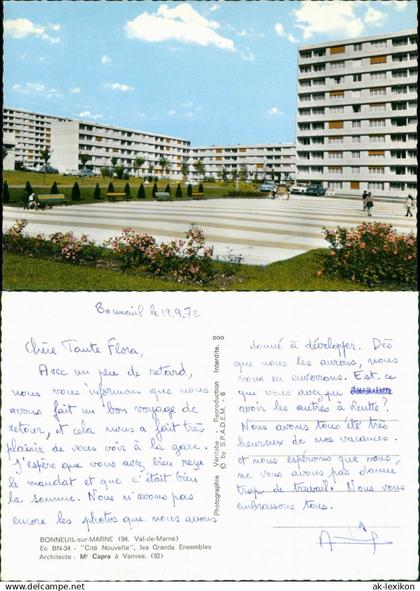 Bonneuil le 19.9.72
Chère Tante Flora,
Avec un peu de retard,
nous vous informons que nous
avons fait un bon voyage de
retour, et cela nous a fait très
plaisir de vous voir à la gare.
J'espère que vous avez bien reçu
le mandat et que c'était bien
la somme. Nous n'avons pas
encore les photos que nous avons
BONNEUIL-sur-MARNE (94. Val-de-Marne)
Ec BN-34 - "Cité Nouvelle", les Grands Ensembles
Architecte : Mr Capra à Vanves. (92)
Photographie Véritable - Reproduction Interdite.
© by S.P.A.D.E.M. - 6
donné à développer. Dès
que nous les aurons, nous
vous en enverrons. Est-ce
que vous avez pu
avoir les autres à
Nous avons tous été très
heureux de nos vacances.
et nous espérions que nous,
ne vous avons pas donné
trop de travail. Nous vous
embrassons tous.
www.ak-lexikon.de